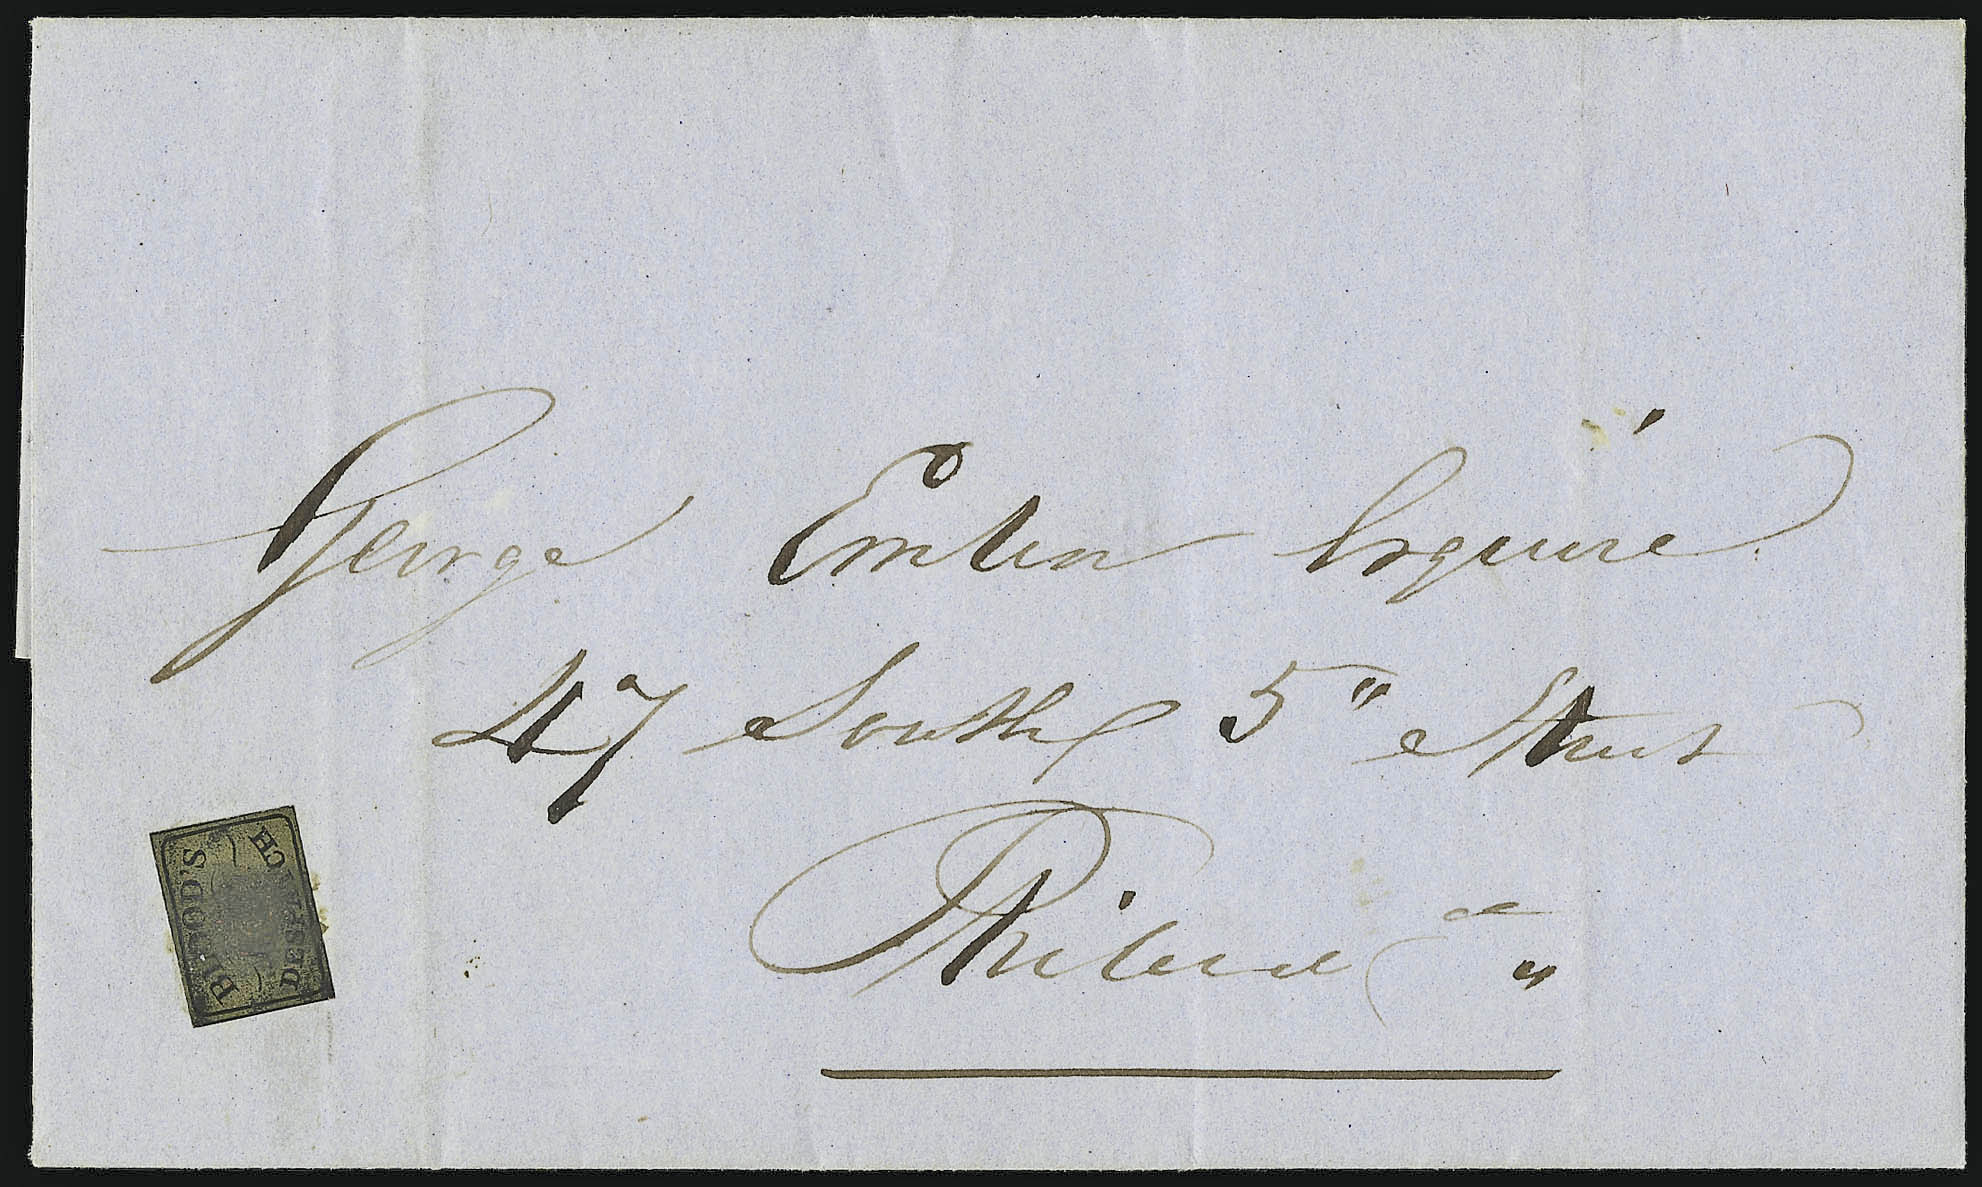 George Emlen Esquire
47 South 5" Street
Philad a "
BLOOD'S
DESPATCH